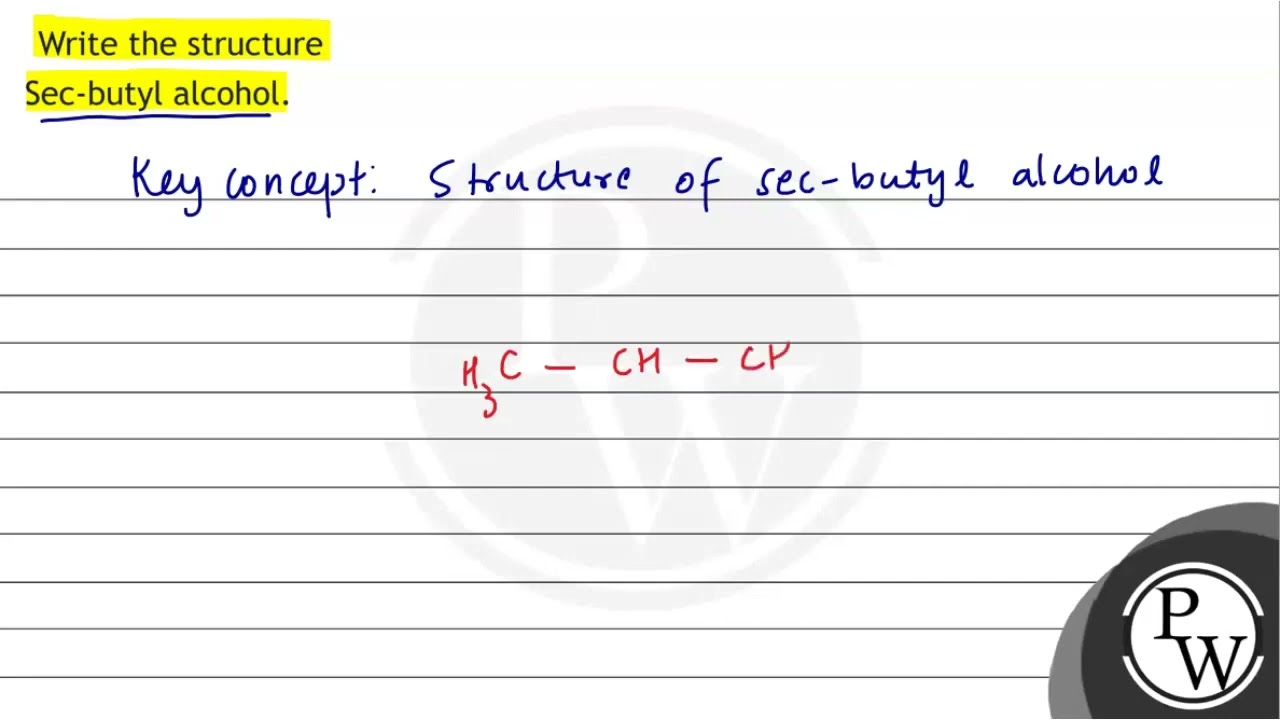 Write the structure
Sec-butyl alcohol.
Key concept: Structure of sec-butyl alcohol
H3C — CH — CH
PW
PW